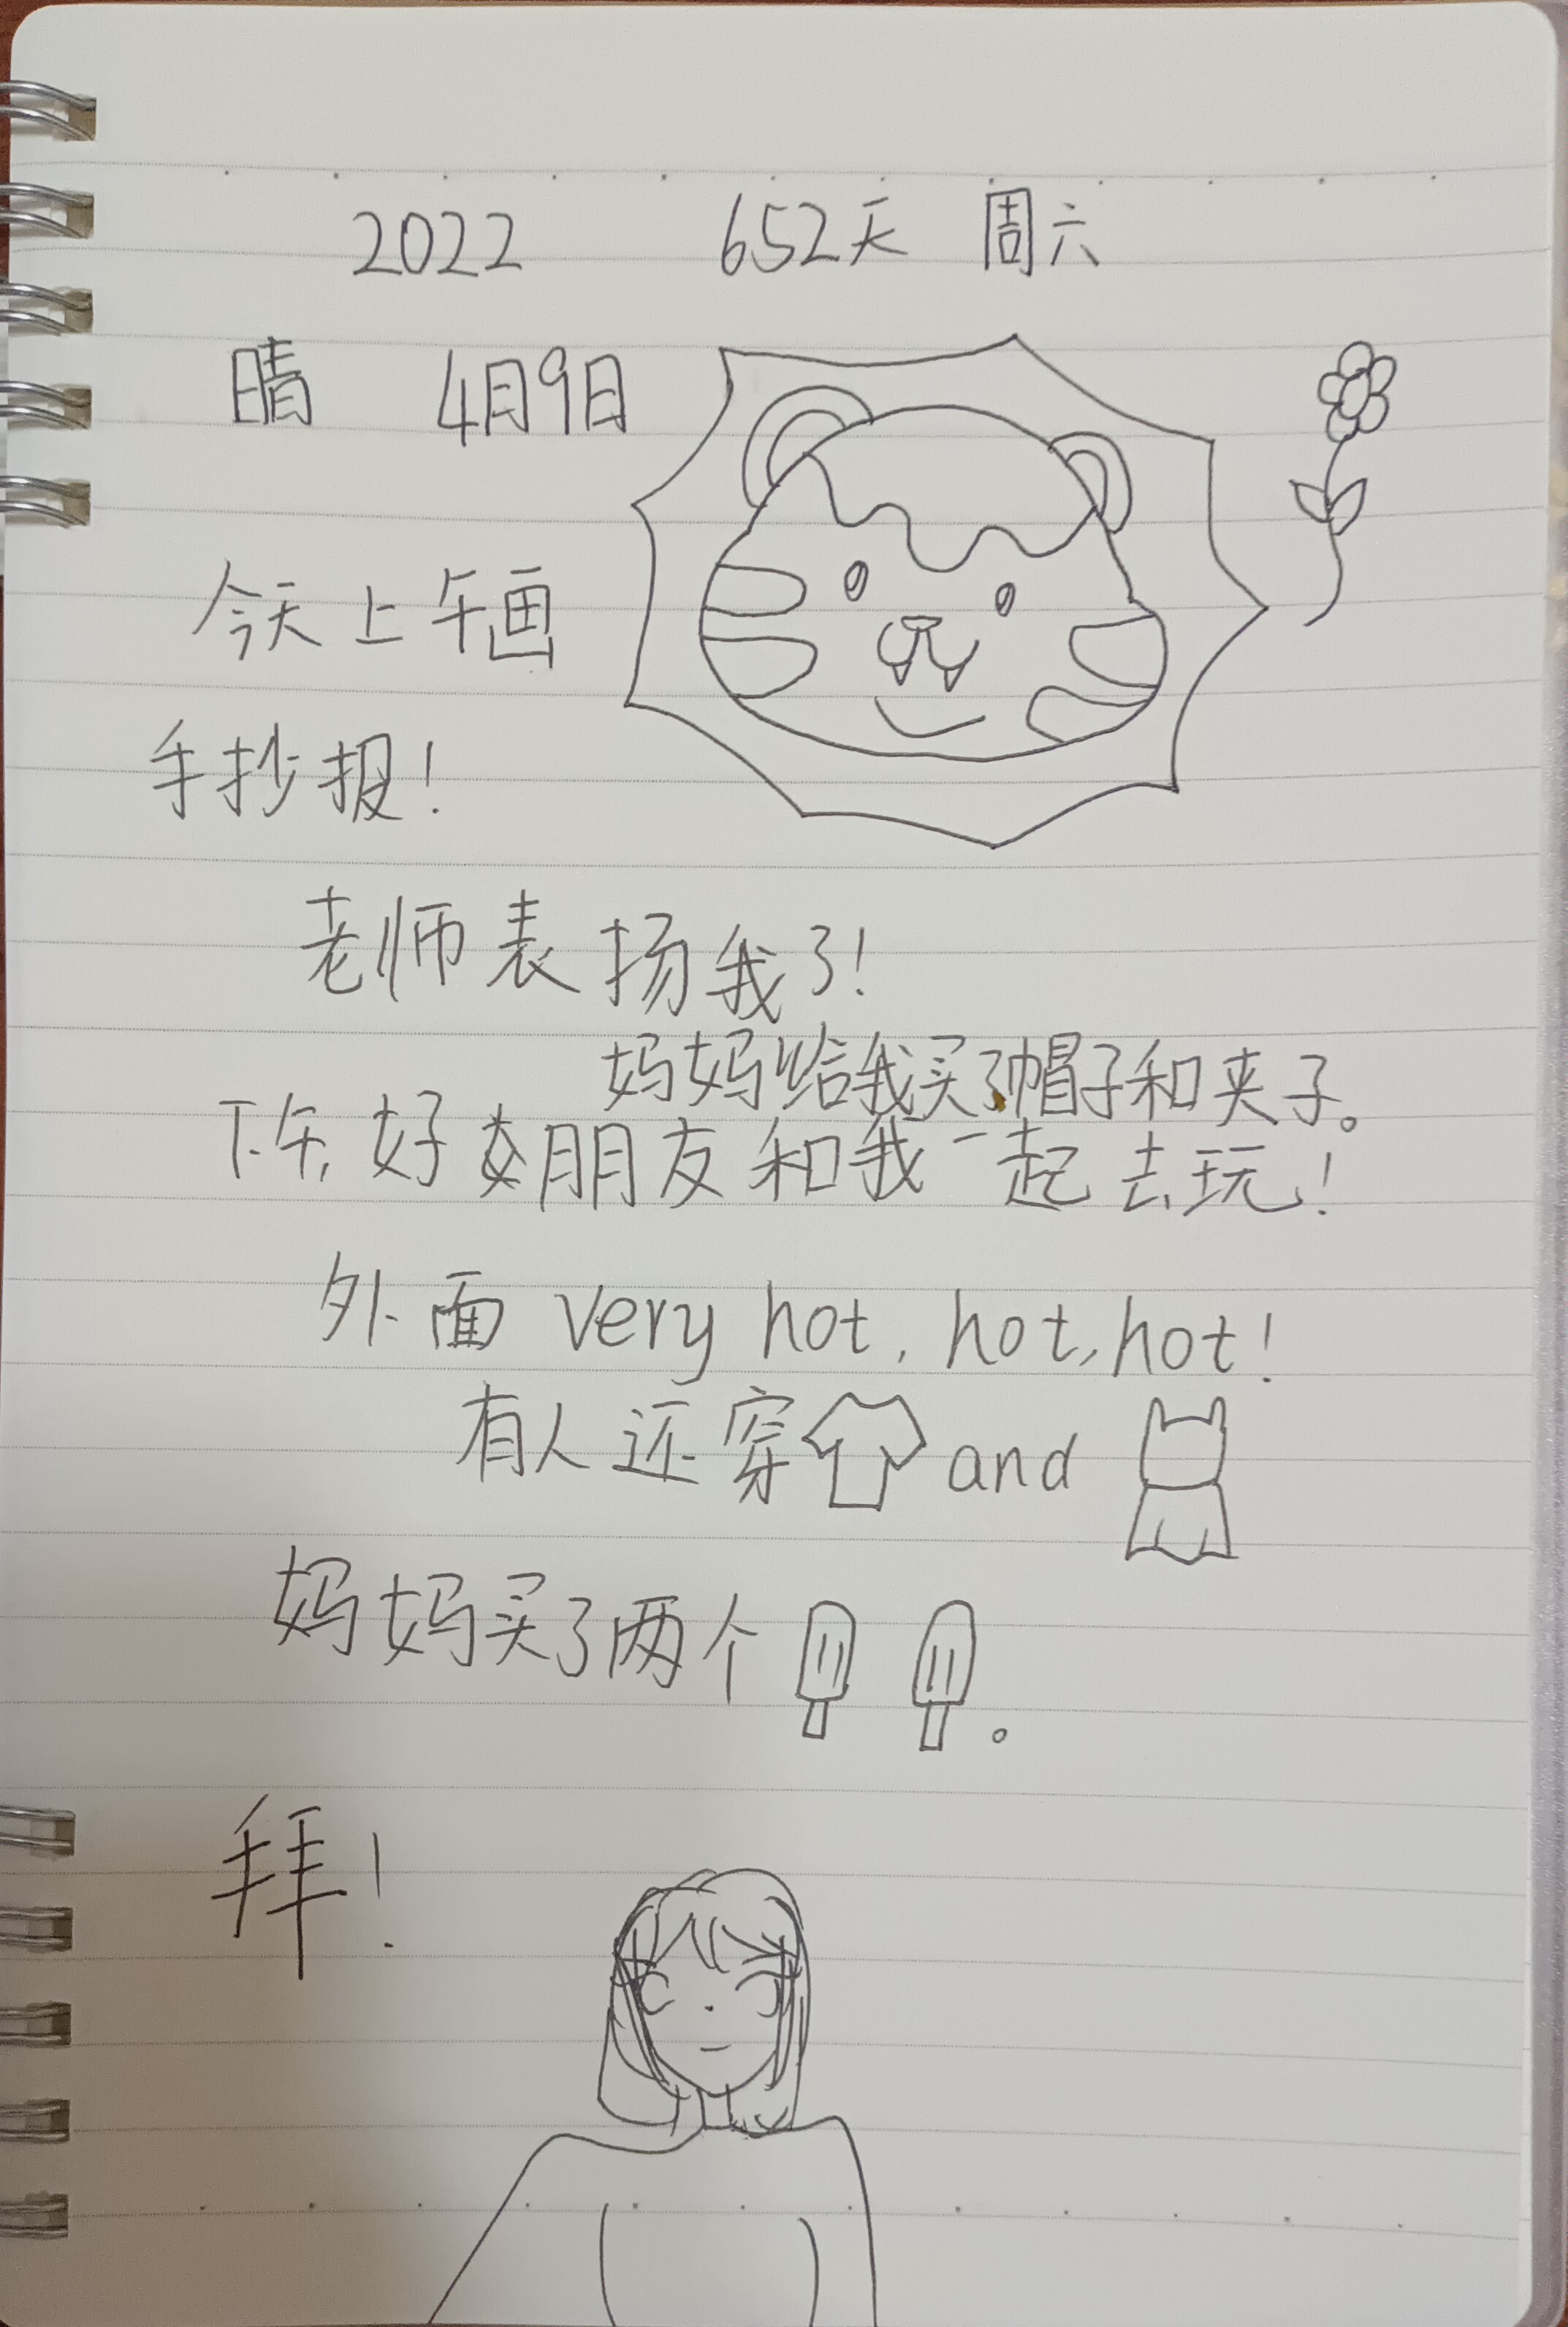 2022 652天 周六
晴 4月9日
今天上午画
手抄报!
老师表扬我了!
妈妈给我买了帽子和夹子。
下午,好朋友和我一起去玩!
外面 very hot, hot, hot!
有人还穿 and
妈妈买了两个 。
拜!